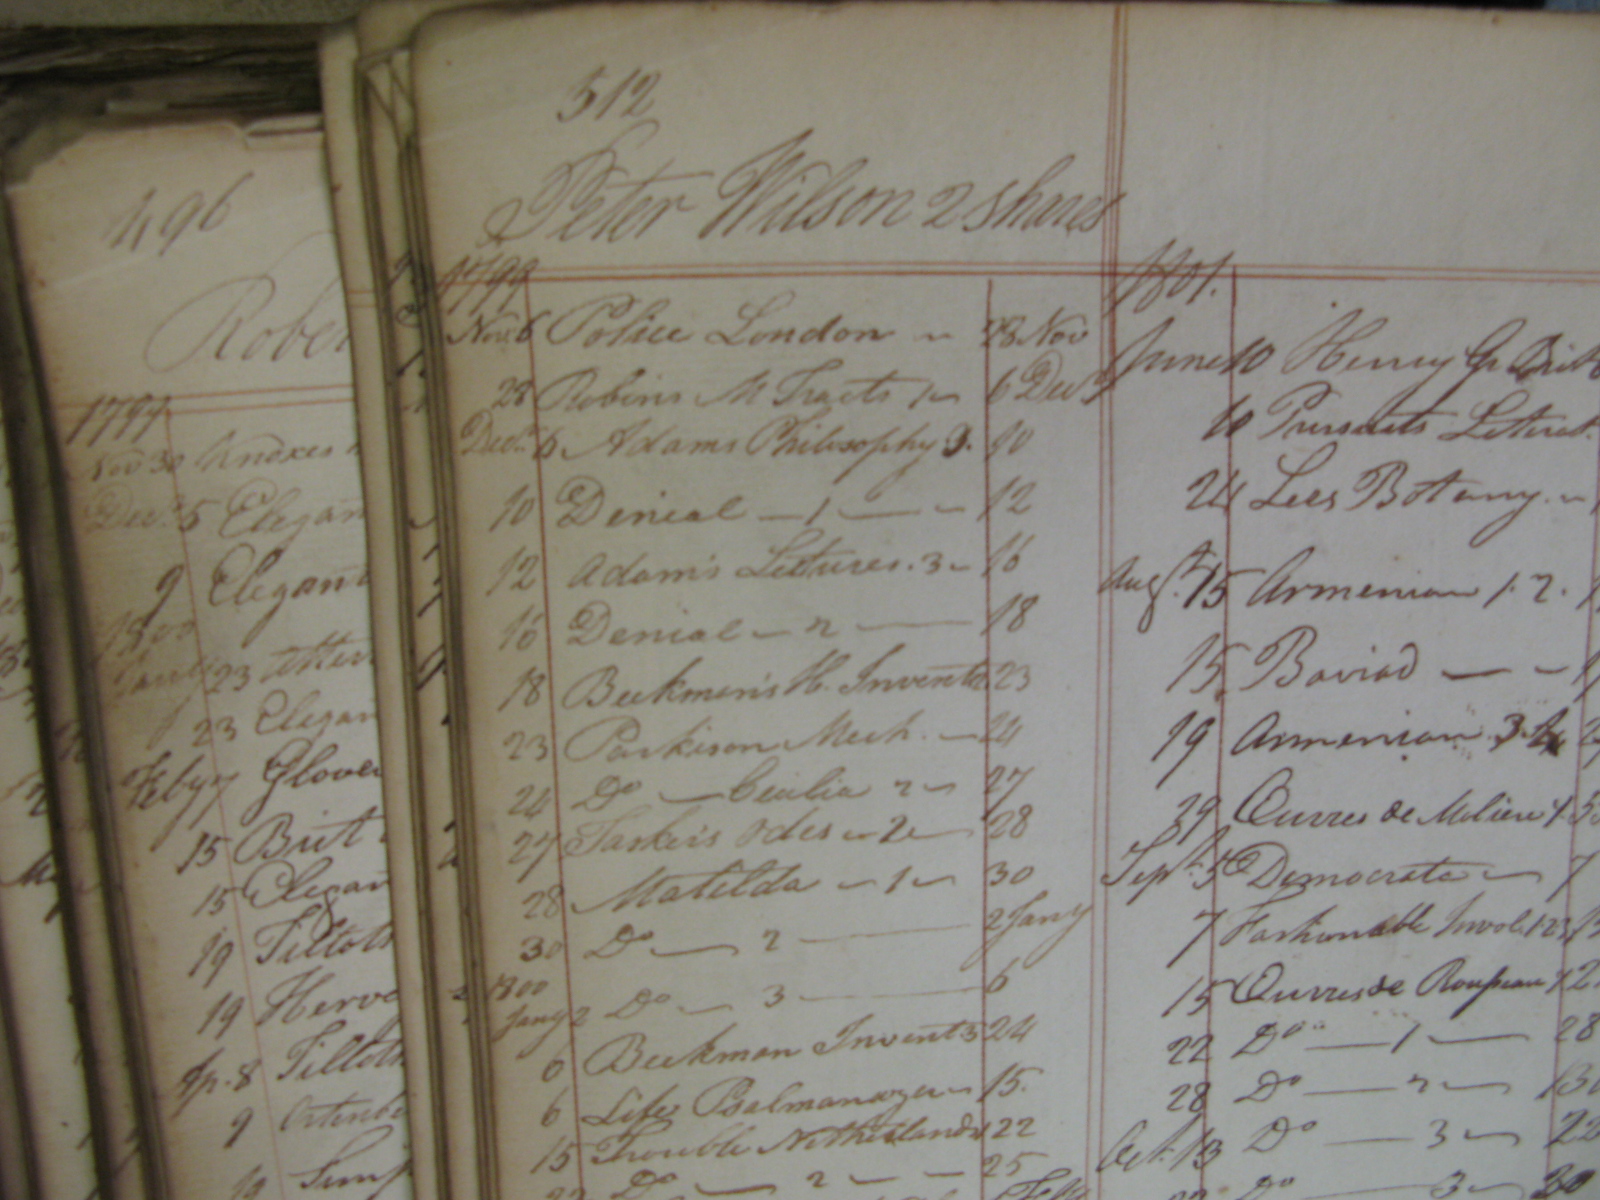 496
Rober
1799
Nov 30 Knoxes
Decr. 5 Elegan
9 Elegan
1800
Jany 23
23 Elegan
Feby 7 Glover
15 Brit
15 Elegan
19 Tillots
19 Herve
Ap. 8 Tilloth
9
512
Peter Wilson 2 Shares
1799
Nov. 6 Police London 28 Nov
28 Robins M Tracts 1 6 Decr
Decr. 6 Adams Philosophy 3. 10
10 Denial — 1 — 12
12 Adam's Lectures. 3 16
16 Denial — 2 — 18
18 Beekman's H. Invent 23
23 Parkison Mech. — 24
24 Do — Cecilia 2 27
27 Tasker's Odes 2 28
28 Matilda — 1 30
30 Do — 2 — 2 Jany
1800
Jany 2 Do — 3 — 6
6 Beekman Invent 3 24
6 Life Psalmanazer 15.
15 Trouble Netherlands 1 22
22 Do — 2 — 25
1801.
June 10 Henry G. Brit
10 Pursuits Literat.
24 Lees Botany.
Augt. 15 Armenian 1. 2.
15 Baviad — —
19 Armenian. 3. 4
29 Œuvres de Moliere 1.
Sept. 5 Democrate — 7
7 Fashionable Invol. 1 2 3
15 Œuvres de Rousseau
22 Do — 1 — 28
28 Do — 2 —
Oct. 13 Do — 3 22
22 Do — 3 30